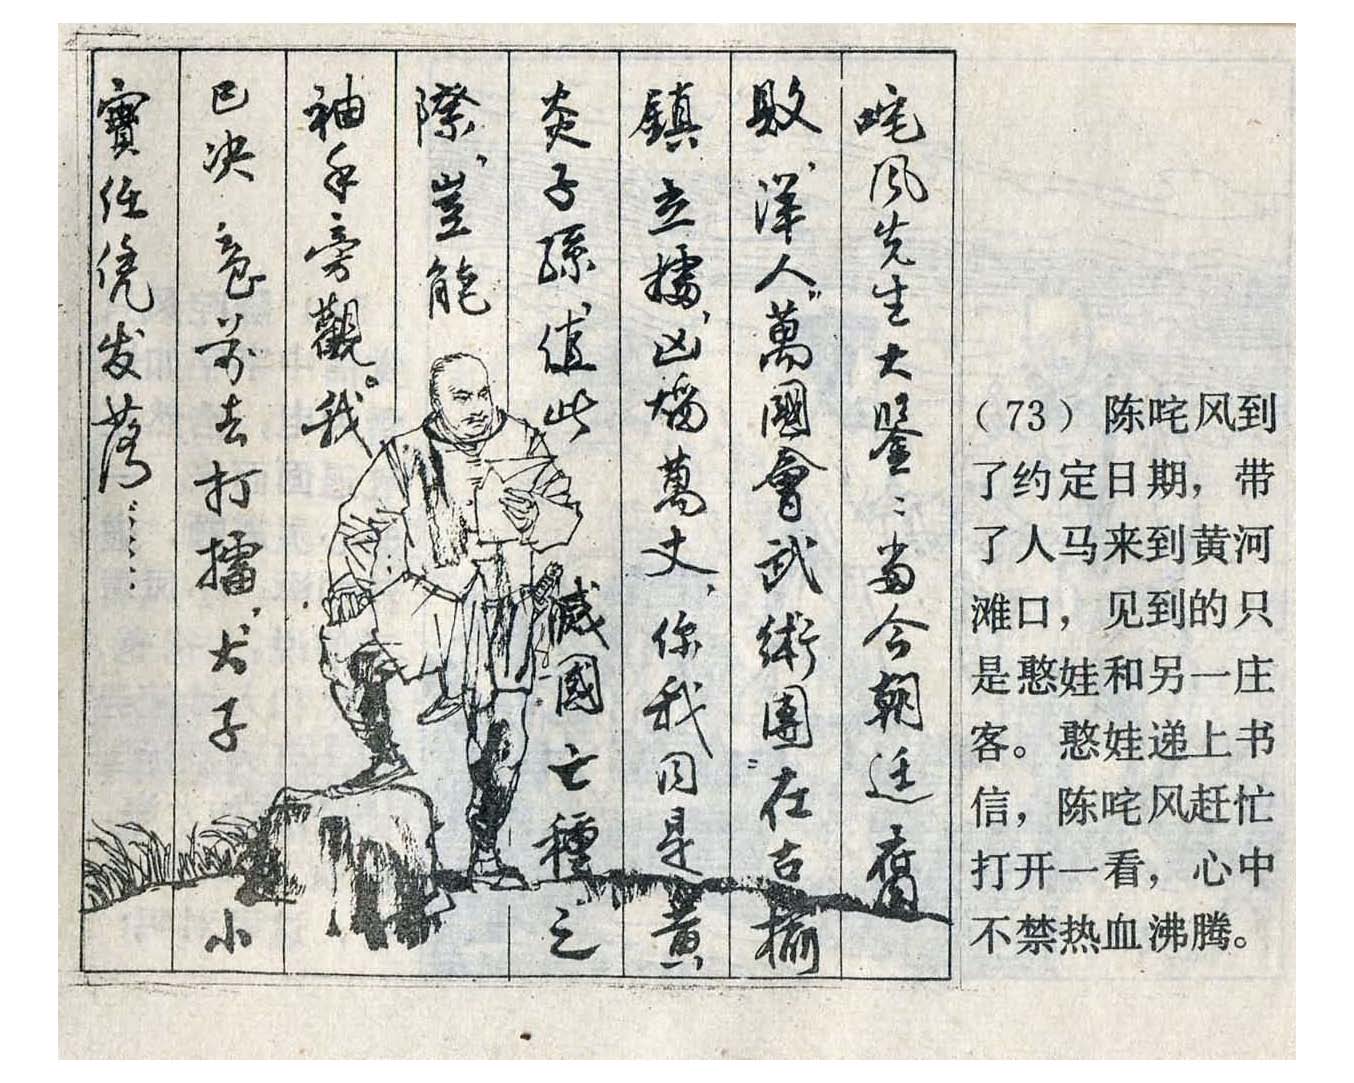 （73）陈咤风到
了约定日期，带
了人马来到黄河
滩口，见到的只
是憨娃和另一庄
客。憨娃递上书
信，陈咤风赶忙
打开一看，心中
不禁热血沸腾。
咤风先生大鑒：当今朝廷腐
败，洋人"萬國會武術團"在古榆
鎮立擂，凶焰萬丈，你我同是黄
炎子孫，值此滅國亡種之
際，豈能
袖手旁觀。我
已决意前去打擂，犬子小
寶任凭发落……